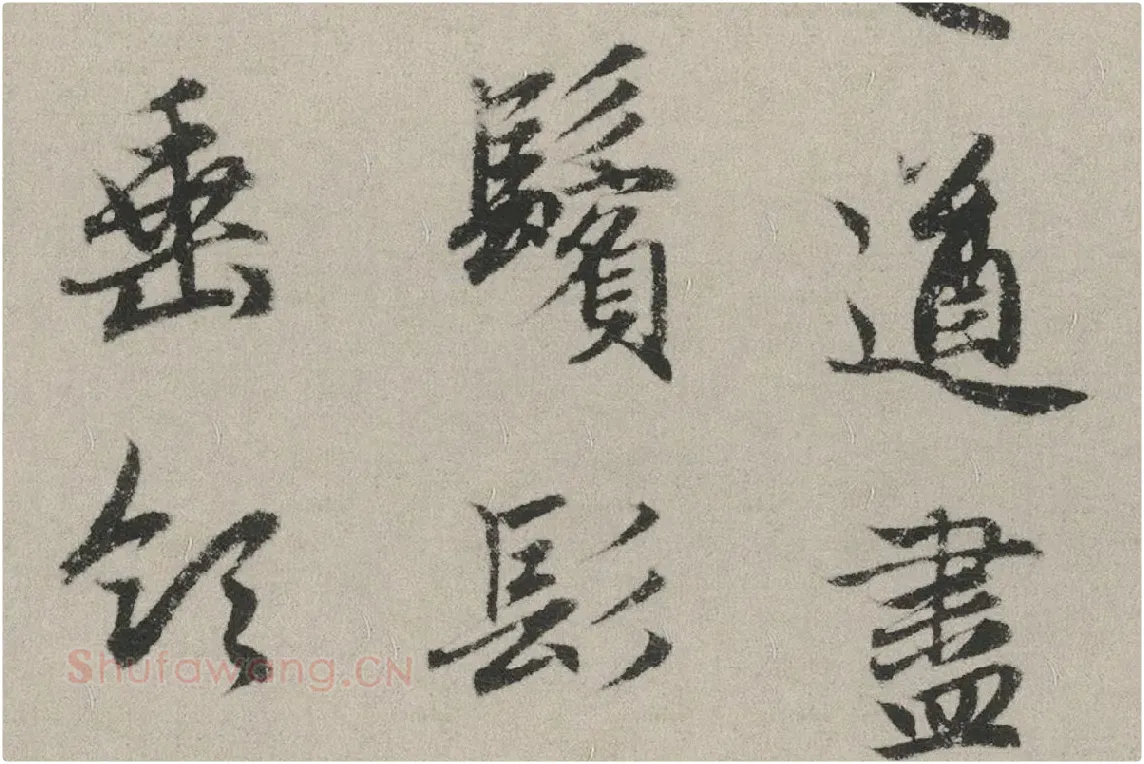 道盡
鬢髟
垂領
Shufawang.CN